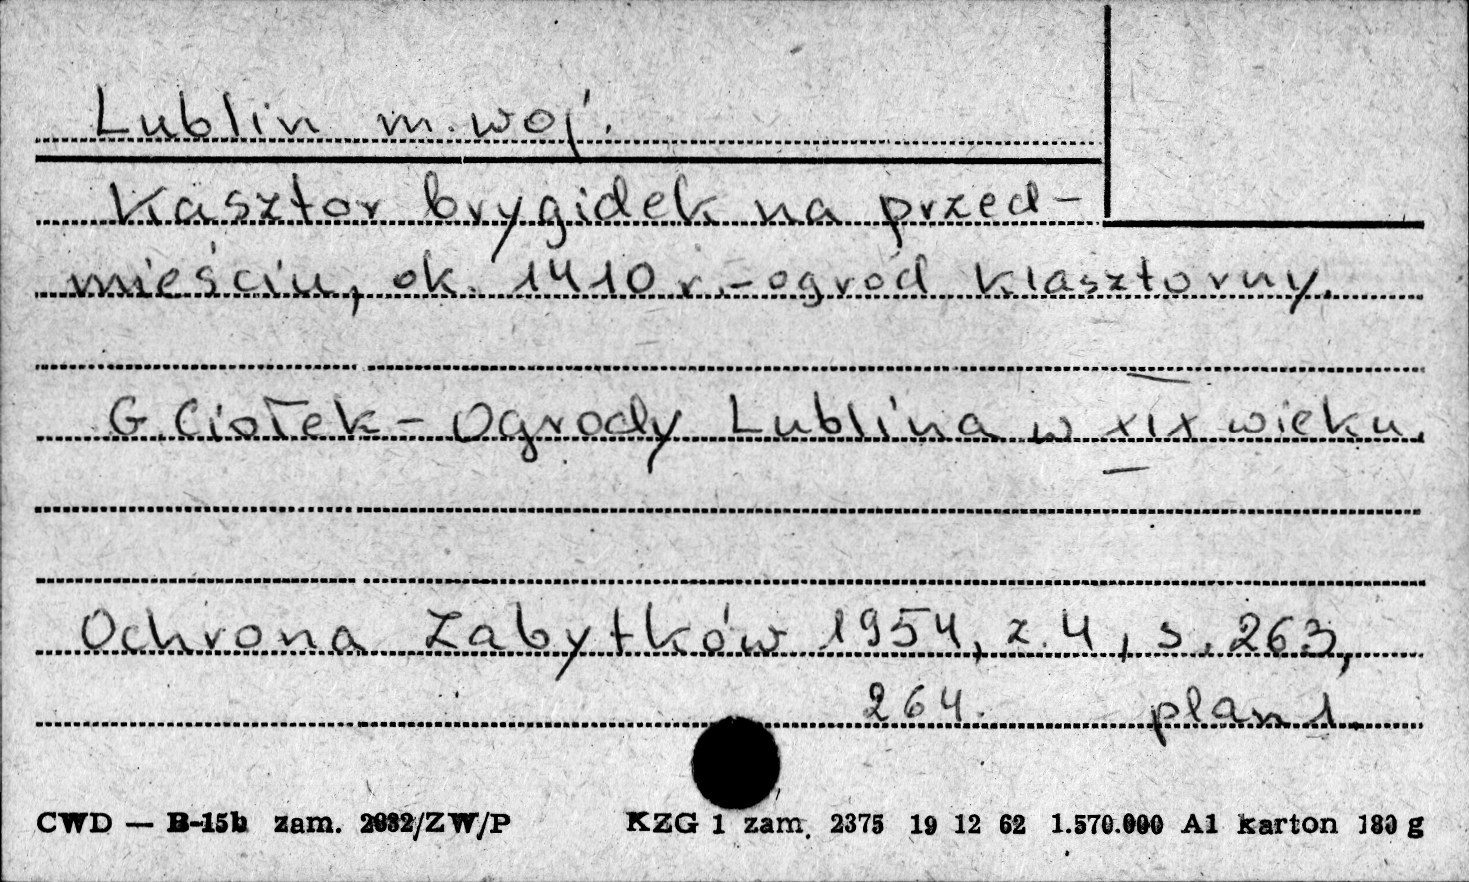 Lublin m. woj.
Kasztor brygidek na przed-
mieściu, ok. 1410 r.-ogród klasztorny.
G. Ciołek - Ogrody Lublina w XIX wieku.
Ochrona Zabytków 1954, z. 4, s. 263,
264. plan 1.
CWD — B-15b zam. 2632/ZW/P KZG 1 zam. 2375 19 12 62 1.570.000 A1 karton 180 g